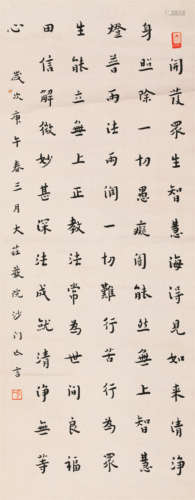 開發眾生智慧海得見如来清淨
身照除一切愚癡闇能然無上智慧
燈普雨法雨潤一切難行苦行為眾
生能立無上正教法常為世間良福
田信解微妙甚深法成就清淨無等
心
歲次庚午春三月大莊嚴院沙门